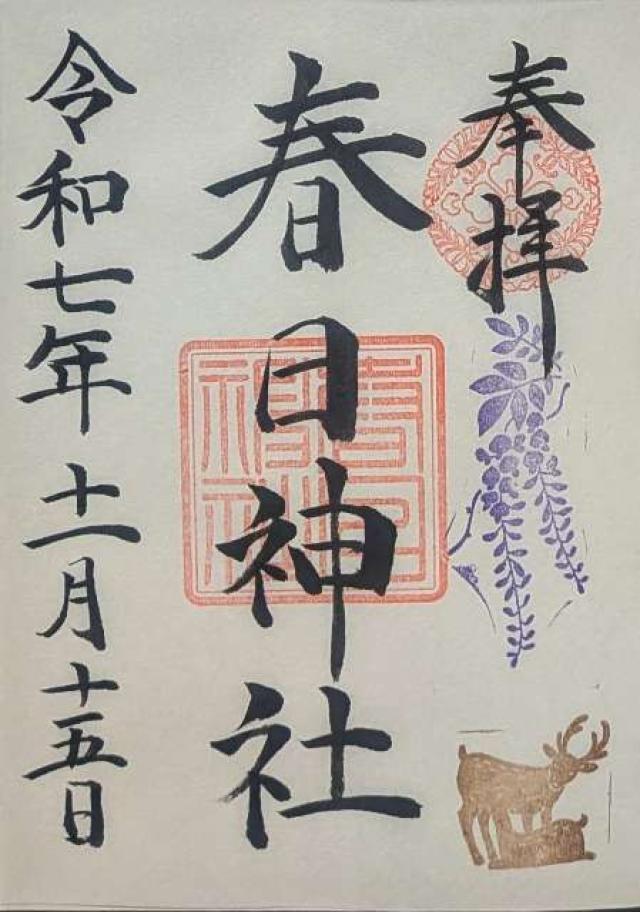 奉拝
春日神社
令和七年十一月十五日
春日
神社